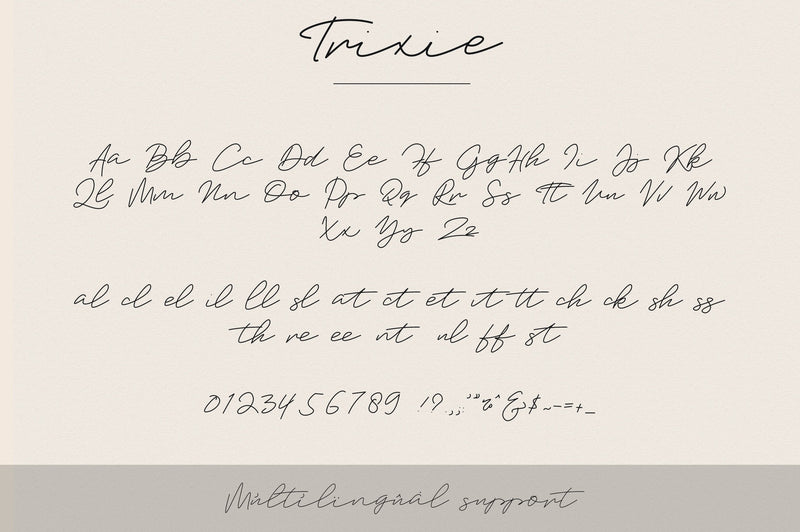 Trixie
Aa Bb Cc Dd Ee Ff Gg Hh Ii Jj Kk
Ll Mm Nn Oo Pp Qq Rr Ss Tt Uu Vv Ww
Xx Yy Zz
al cl el il ll sl at ct et it tt ch ck sh ss
th re ee nt nl ff st
0123456789 !?.,:;'"%^&$~–-=+_
Múltilingüâl support